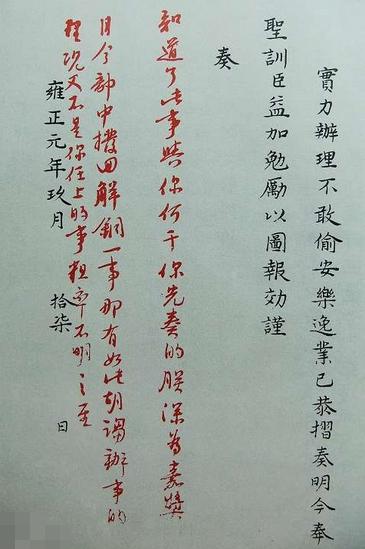 實力辦理不敢偷安樂逸業已恭摺奏明今奉
聖訓臣益加勉勵以圖報効謹
奏
知道了此事與你何干你先奏的朕深為嘉獎
目今部中撥回解銅一事那有如此胡謅辦事的
理況又不是你任上的事粗率不明之至
雍正元年玖月 拾柒 日